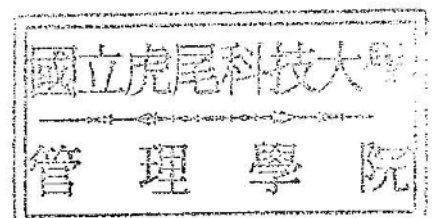 國立虎尾科技大學
管理學院